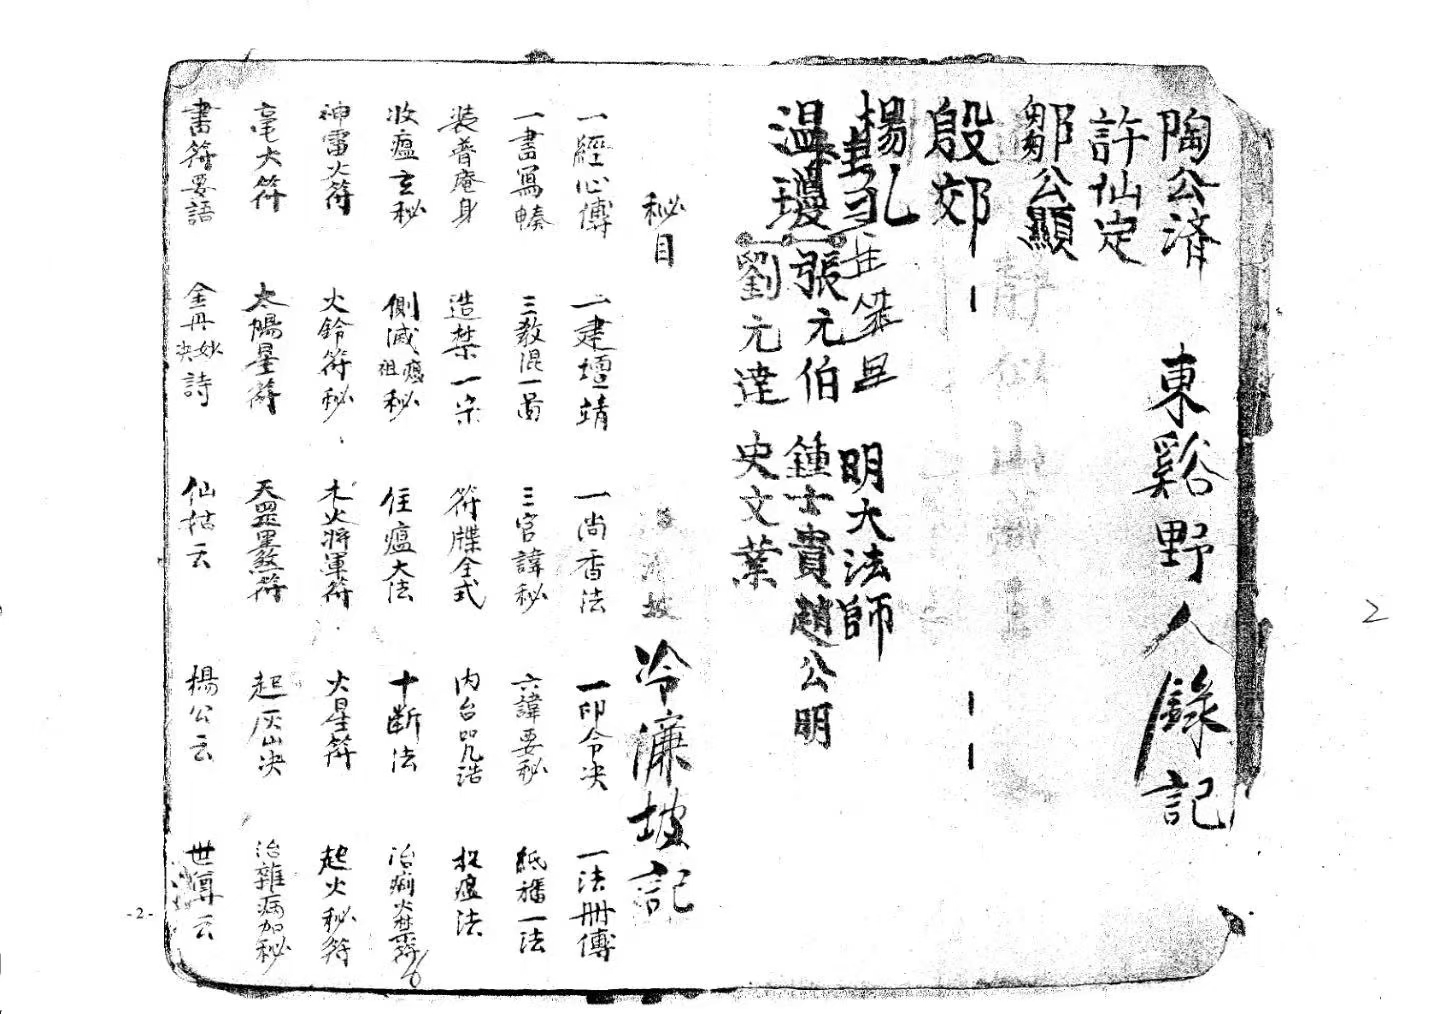 陶公済
東谿野人錄記
許仙定
鄒公顯
殷郊
楊
明大法師
張元伯
鍾士貴
趙公明
温瓊
劉元達
史文業
秘目
冷濂坡記
一經心傳
一建壇靖
一尚香法
一印令决
一法冊傳
一書寫
三教混一
三官諱秘
六諱要秘
紙旛一法
裝普庵身
造禁一宗
符牒全式
内台咒诰
收瘟法
收瘟玄秘
側减祖瘟秘
住瘟大法
十断法
治痢火禁符
神雷火符
火鈴符秘
木火将軍符
火星符
起火秘符
毫大符
太陽星符
天罡黑煞符
起灰山决
治雜病加秘
書符要語
金丹妙决詩
仙姑云
楊公云
世尊云
-2-
2